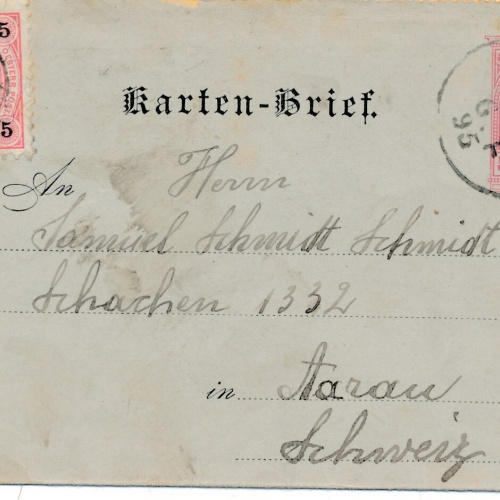 5
5
Karten-Brief.
An Herrn
Samuel Schmidt Schmidt
Schachen 1332
in Aarau
Schweiz
95